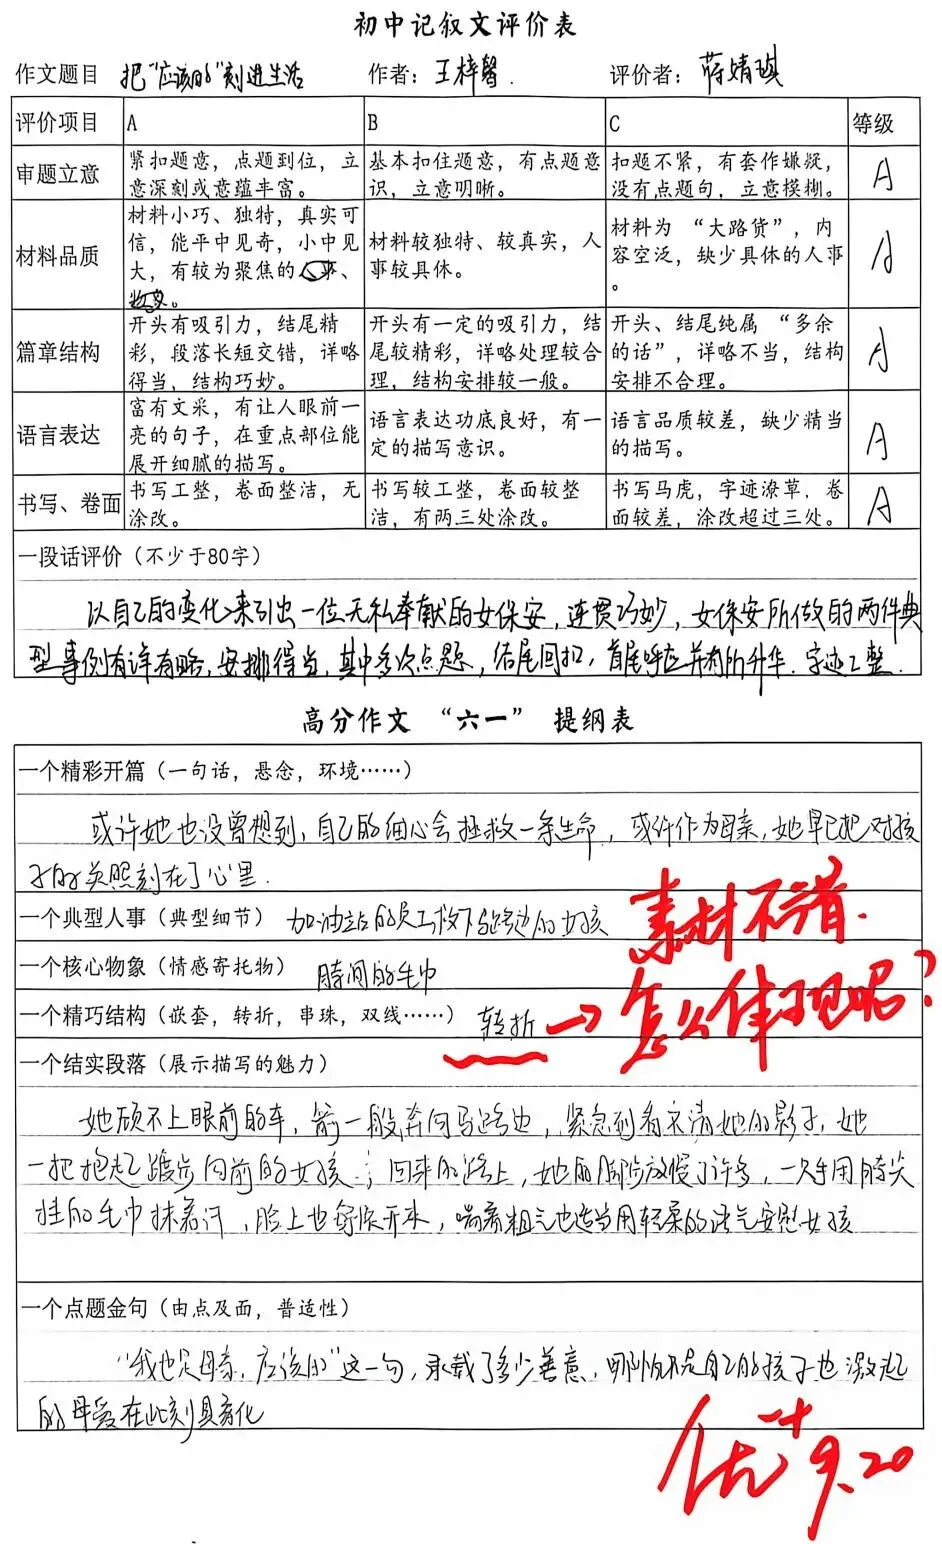 初中记叙文评价表
作文题目 把“应该的”刻进生活 作者：王梓馨. 评价者：蒋婧琪
评价项目 A B C 等级
审题立意 紧扣题意，点题到位，立意深刻或意蕴丰富。 基本扣住题意，有点题意识，立意明晰。 扣题不紧，有套作嫌疑，没有点题句，立意模糊。 A
材料品质 材料小巧、独特，真实可信，能平中见奇，小中见大，有较为聚焦的人事、物象。 材料较独特、较真实，人事较具体。 材料为“大路货”，内容空泛，缺少具体的人事。 A
篇章结构 开头有吸引力，结尾精彩，段落长短交错，详略得当，结构巧妙。 开头有一定的吸引力，结尾较精彩，详略处理较合理，结构安排较一般。 开头、结尾纯属“多余的话”，详略不当，结构安排不合理。 A
语言表达 富有文采，有让人眼前一亮的句子，在重点部位能展开细腻的描写。 语言表达功底良好，有一定的描写意识。 语言品质较差，缺少精当的描写。 A
书写、卷面 书写工整，卷面整洁，无涂改。 书写较工整，卷面较整洁，有两三处涂改。 书写马虎，字迹潦草，卷面较差，涂改超过三处。 A
一段话评价（不少于80字）
以自己的变化来引出一位无私奉献的女保安，连贯巧妙，女保安所做的两件典
型事例有详有略，安排得当，其中多次点题，结尾回扣，首尾呼应并有所升华.字迹工整.
高分作文 “六一” 提纲表
一个精彩开篇（一句话，悬念，环境……）
或许她也没曾想到，自己的细心会拯救一条生命，或许作为母亲，她早已把对孩
子的关照刻在了心里.
一个典型人事（典型细节） 加油站的员工救下马路边的女孩
素材不错.
一个核心物象（情感寄托物） 肩间的毛巾
一个精巧结构（嵌套，转折，串珠，双线……） 转折
怎么体现呢？
一个结实段落（展示描写的魅力）
她顾不上眼前的车，箭一般奔向马路边，紧急到看不清她的影子，她
一把抱起踱步向前的女孩；回来的路上，她的脚步放慢了许多，一只手用肩头
挂的毛巾抹着汗，脸上也舒展开来，喘着粗气也适当用轻柔的语气安慰女孩
一个点题金句（由点及面，普适性）
“我也是母亲，应该的”这一句，承载了多少善意，哪怕不是自己的孩子也激起
的母爱在此刻具象化
优+ 9.20